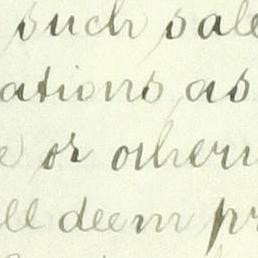 such sale
ations as
e or otherw
ll deem pr